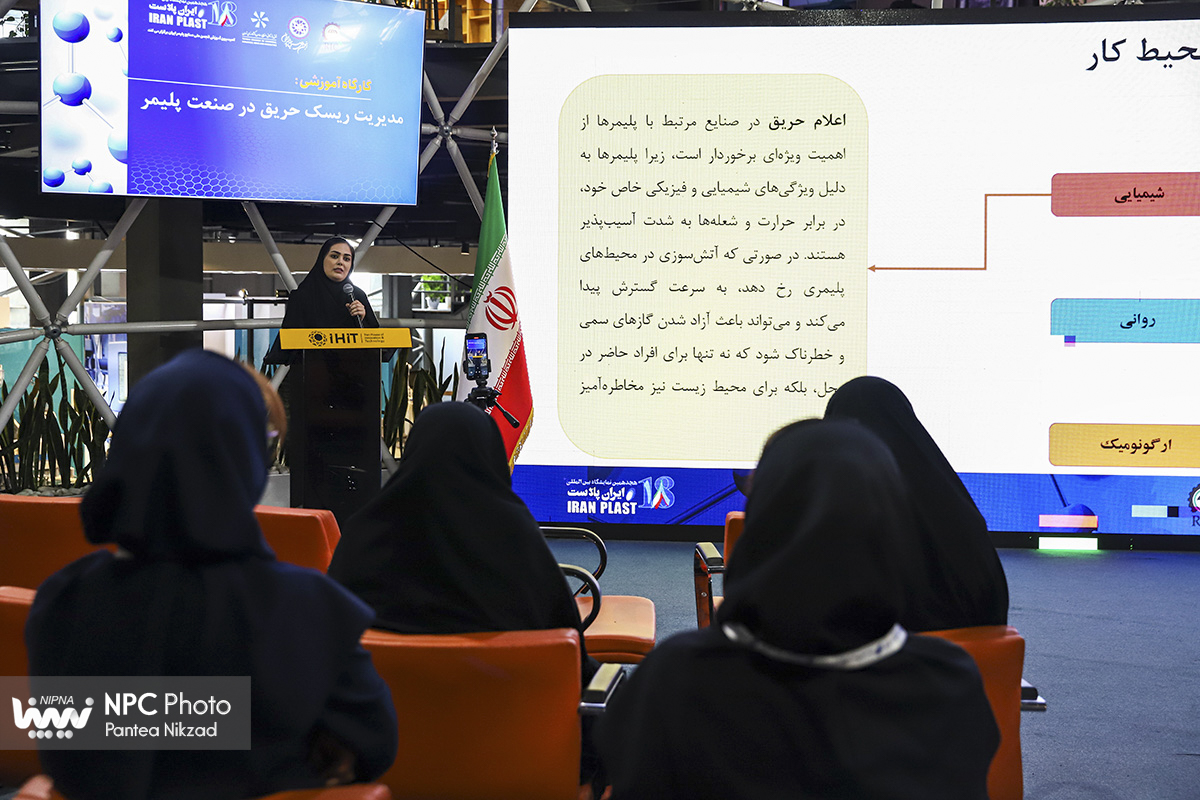 ایران پلاست 18
IRAN PLAST
کارگاه آموزشی:
مدیریت ریسک حریق در صنعت پلیمر
حیط کار
اعلام حریق در صنایع مرتبط با پلیمرها از
اهمیت ویژه‌ای برخوردار است، زیرا پلیمرها به
دلیل ویژگی‌های شیمیایی و فیزیکی خاص خود،
در برابر حرارت و شعله‌ها به شدت آسیب‌پذیر
هستند. در صورتی که آتش‌سوزی در محیط‌های
پلیمری رخ دهد، به سرعت گسترش پیدا
می‌کند و می‌تواند باعث آزاد شدن گازهای سمی
و خطرناک شود که نه تنها برای افراد حاضر در
محل، بلکه برای محیط زیست نیز مخاطره‌آمیز
شیمیایی
روانی
ارگونومیک
iHiT
هجدهمین نمایشگاه بین المللی
ایران پلاست 18
IRAN PLAST
NIPNA
نیپنا
NPC Photo
Pantea Nikzad